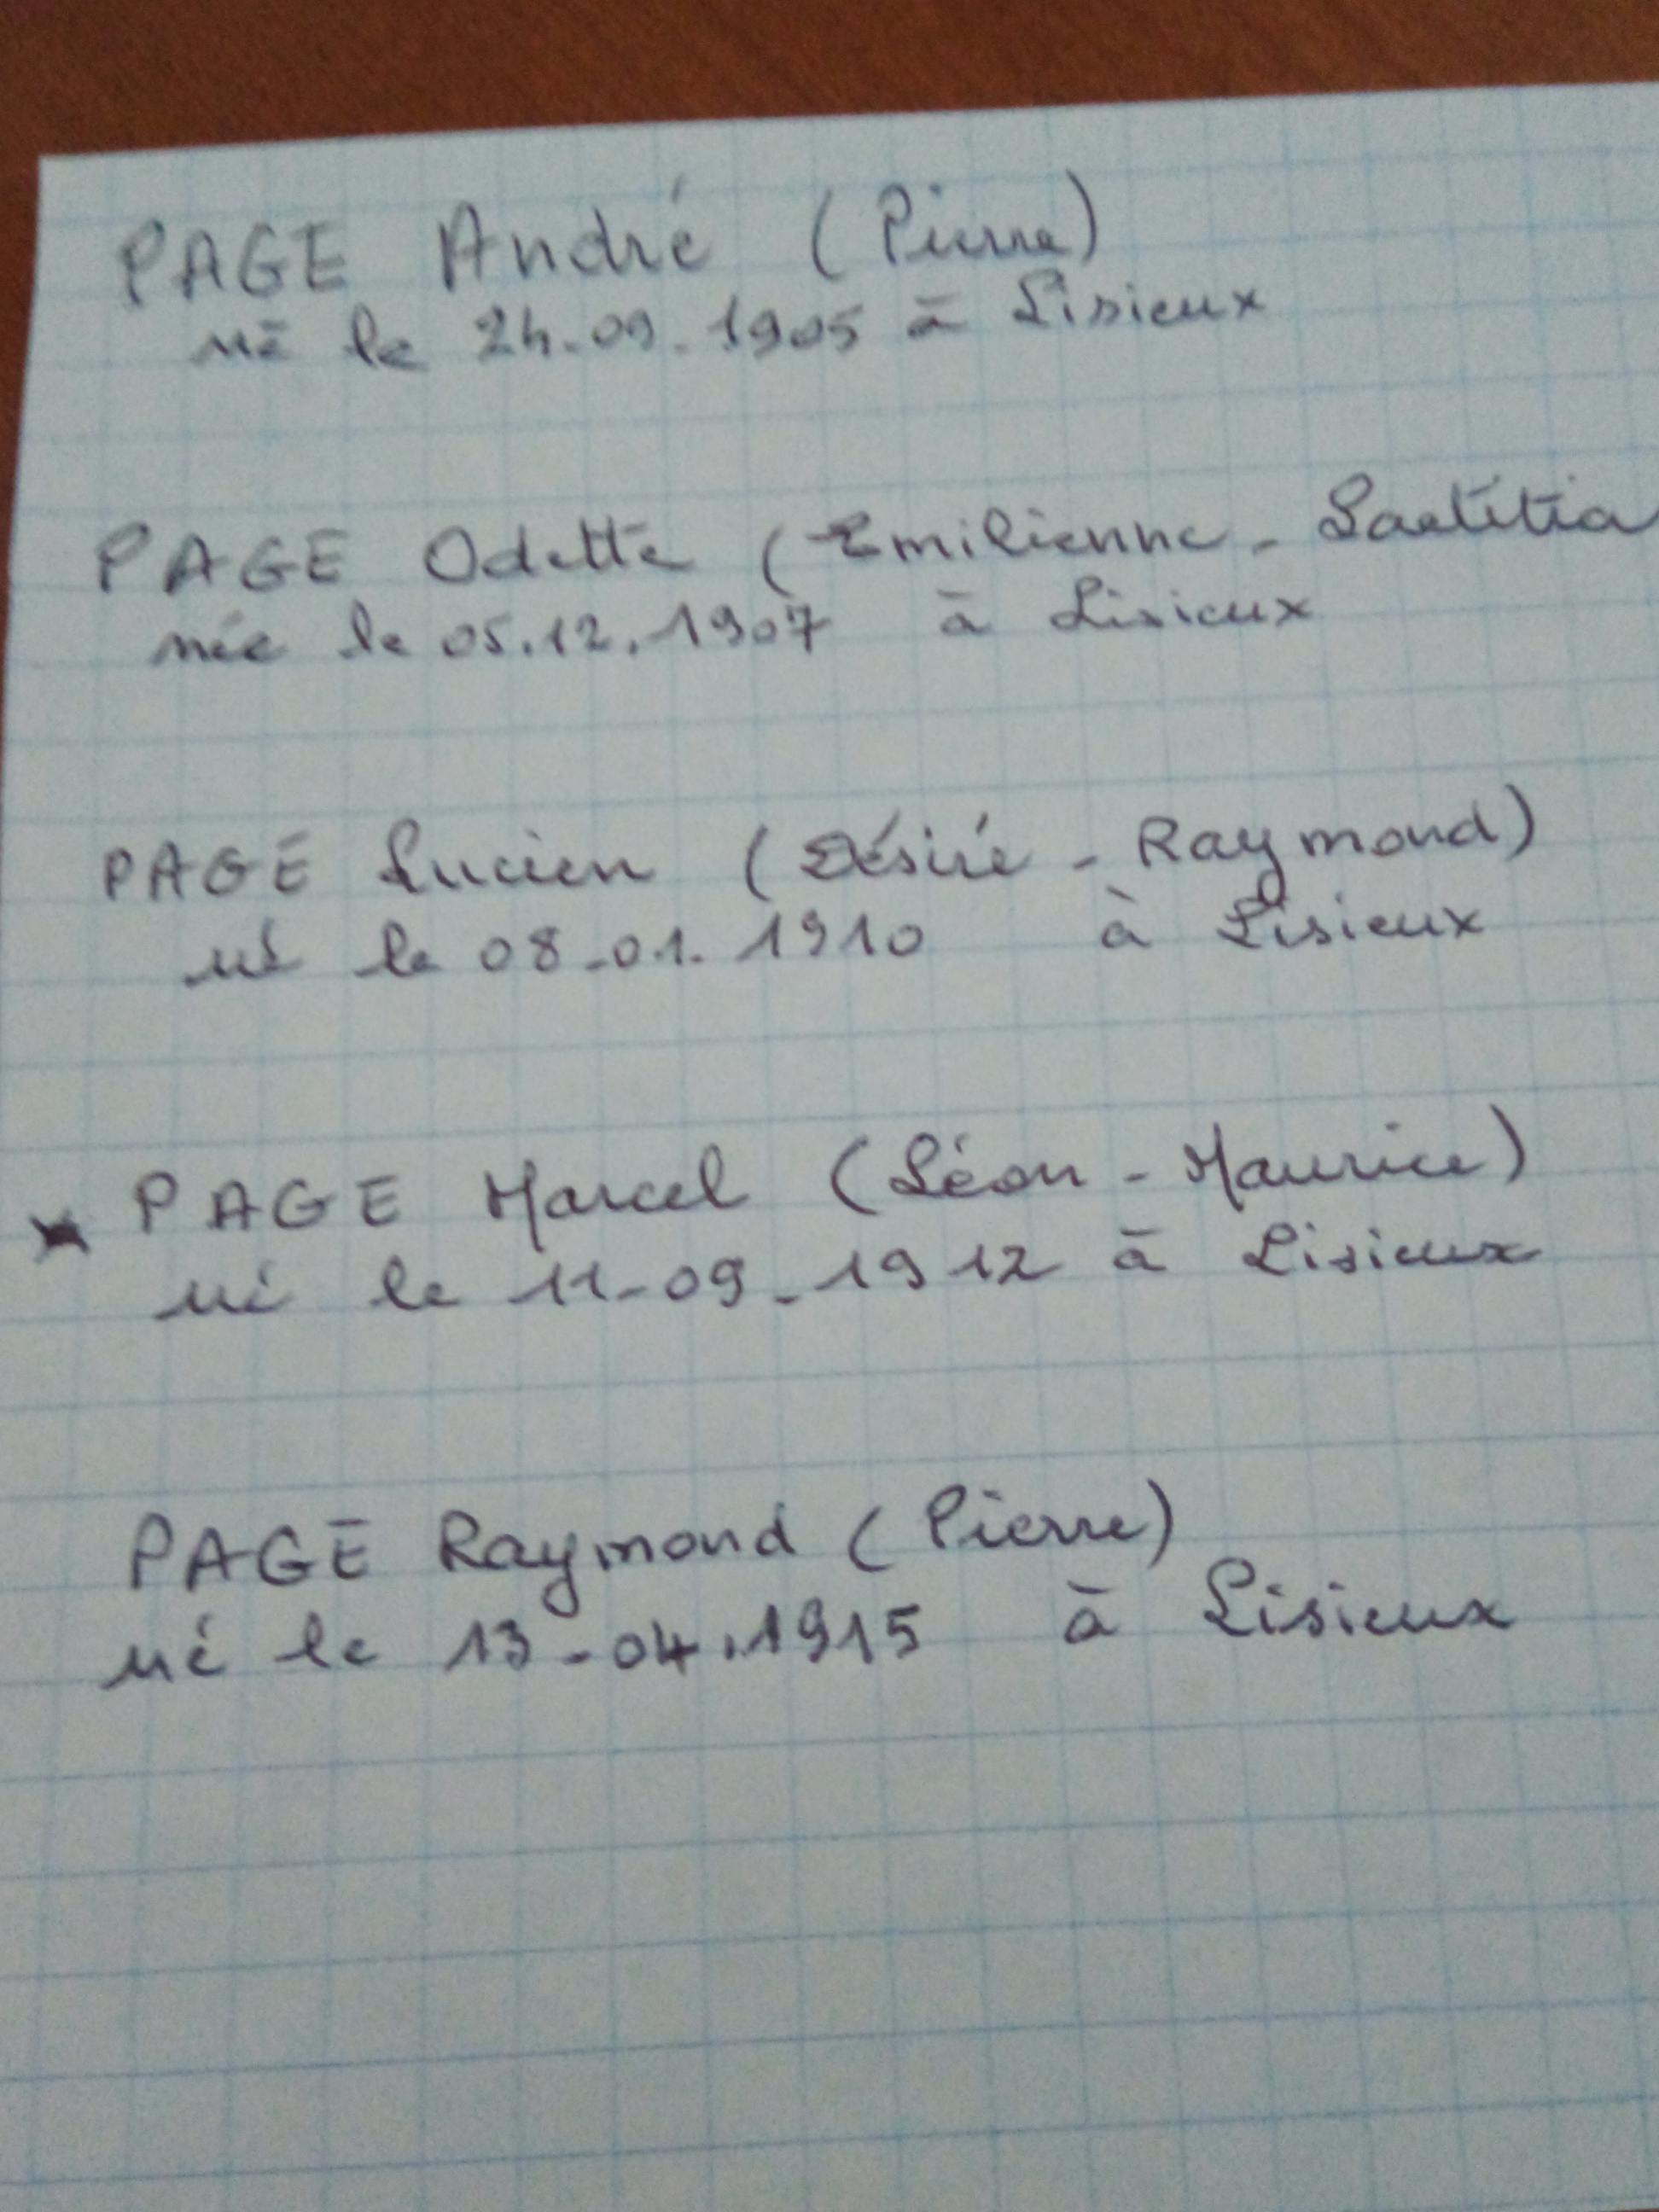 PAGE André (Pierre)
né le 24.09.1905 à Lisieux
PAGE Odette (Emilienne - Laetitia
née le 05.12.1907 à Lisieux
PAGE Lucien (Désiré - Raymond)
né le 08-01.1910 à Lisieux
x PAGE Marcel (Léon - Maurice)
né le 11-09-1912 à Lisieux
PAGE Raymond (Pierre)
né le 13-04.1915 à Lisieux